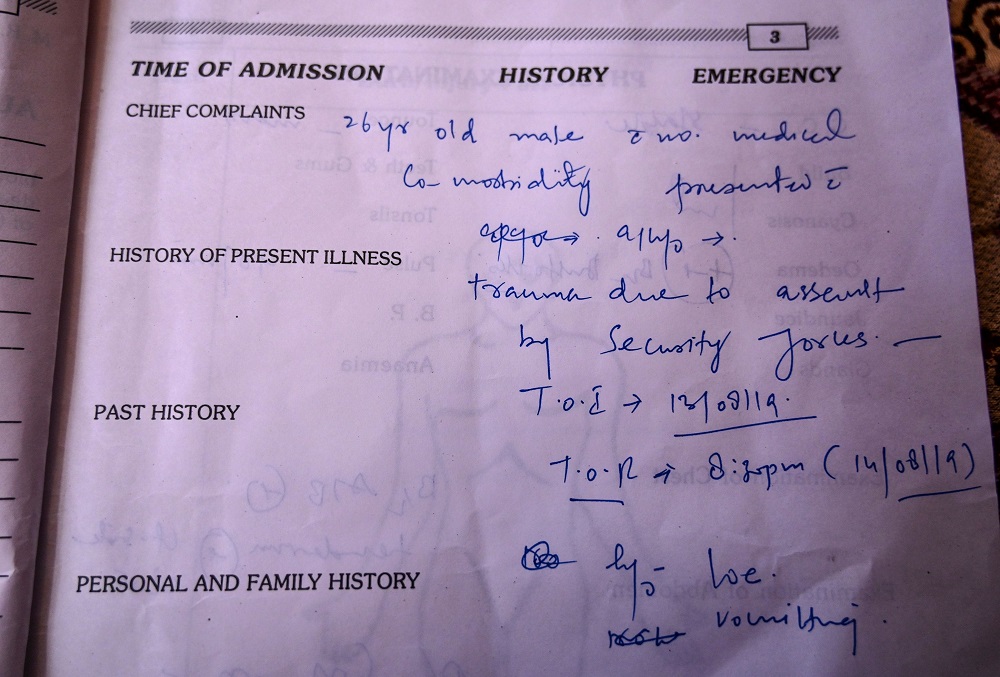 3
TIME OF ADMISSION HISTORY EMERGENCY
CHIEF COMPLAINTS
26yr old male c̄ no. medical
Co-morbidity presented c̄
a/h/o →.
HISTORY OF PRESENT ILLNESS
trauma due to assault
by Security forces. —
T.O.I → 13/08/19.
PAST HISTORY
T.O.R → 8:30pm (14/08/19)
PERSONAL AND FAMILY HISTORY
h/o - LOC.
vomitting.